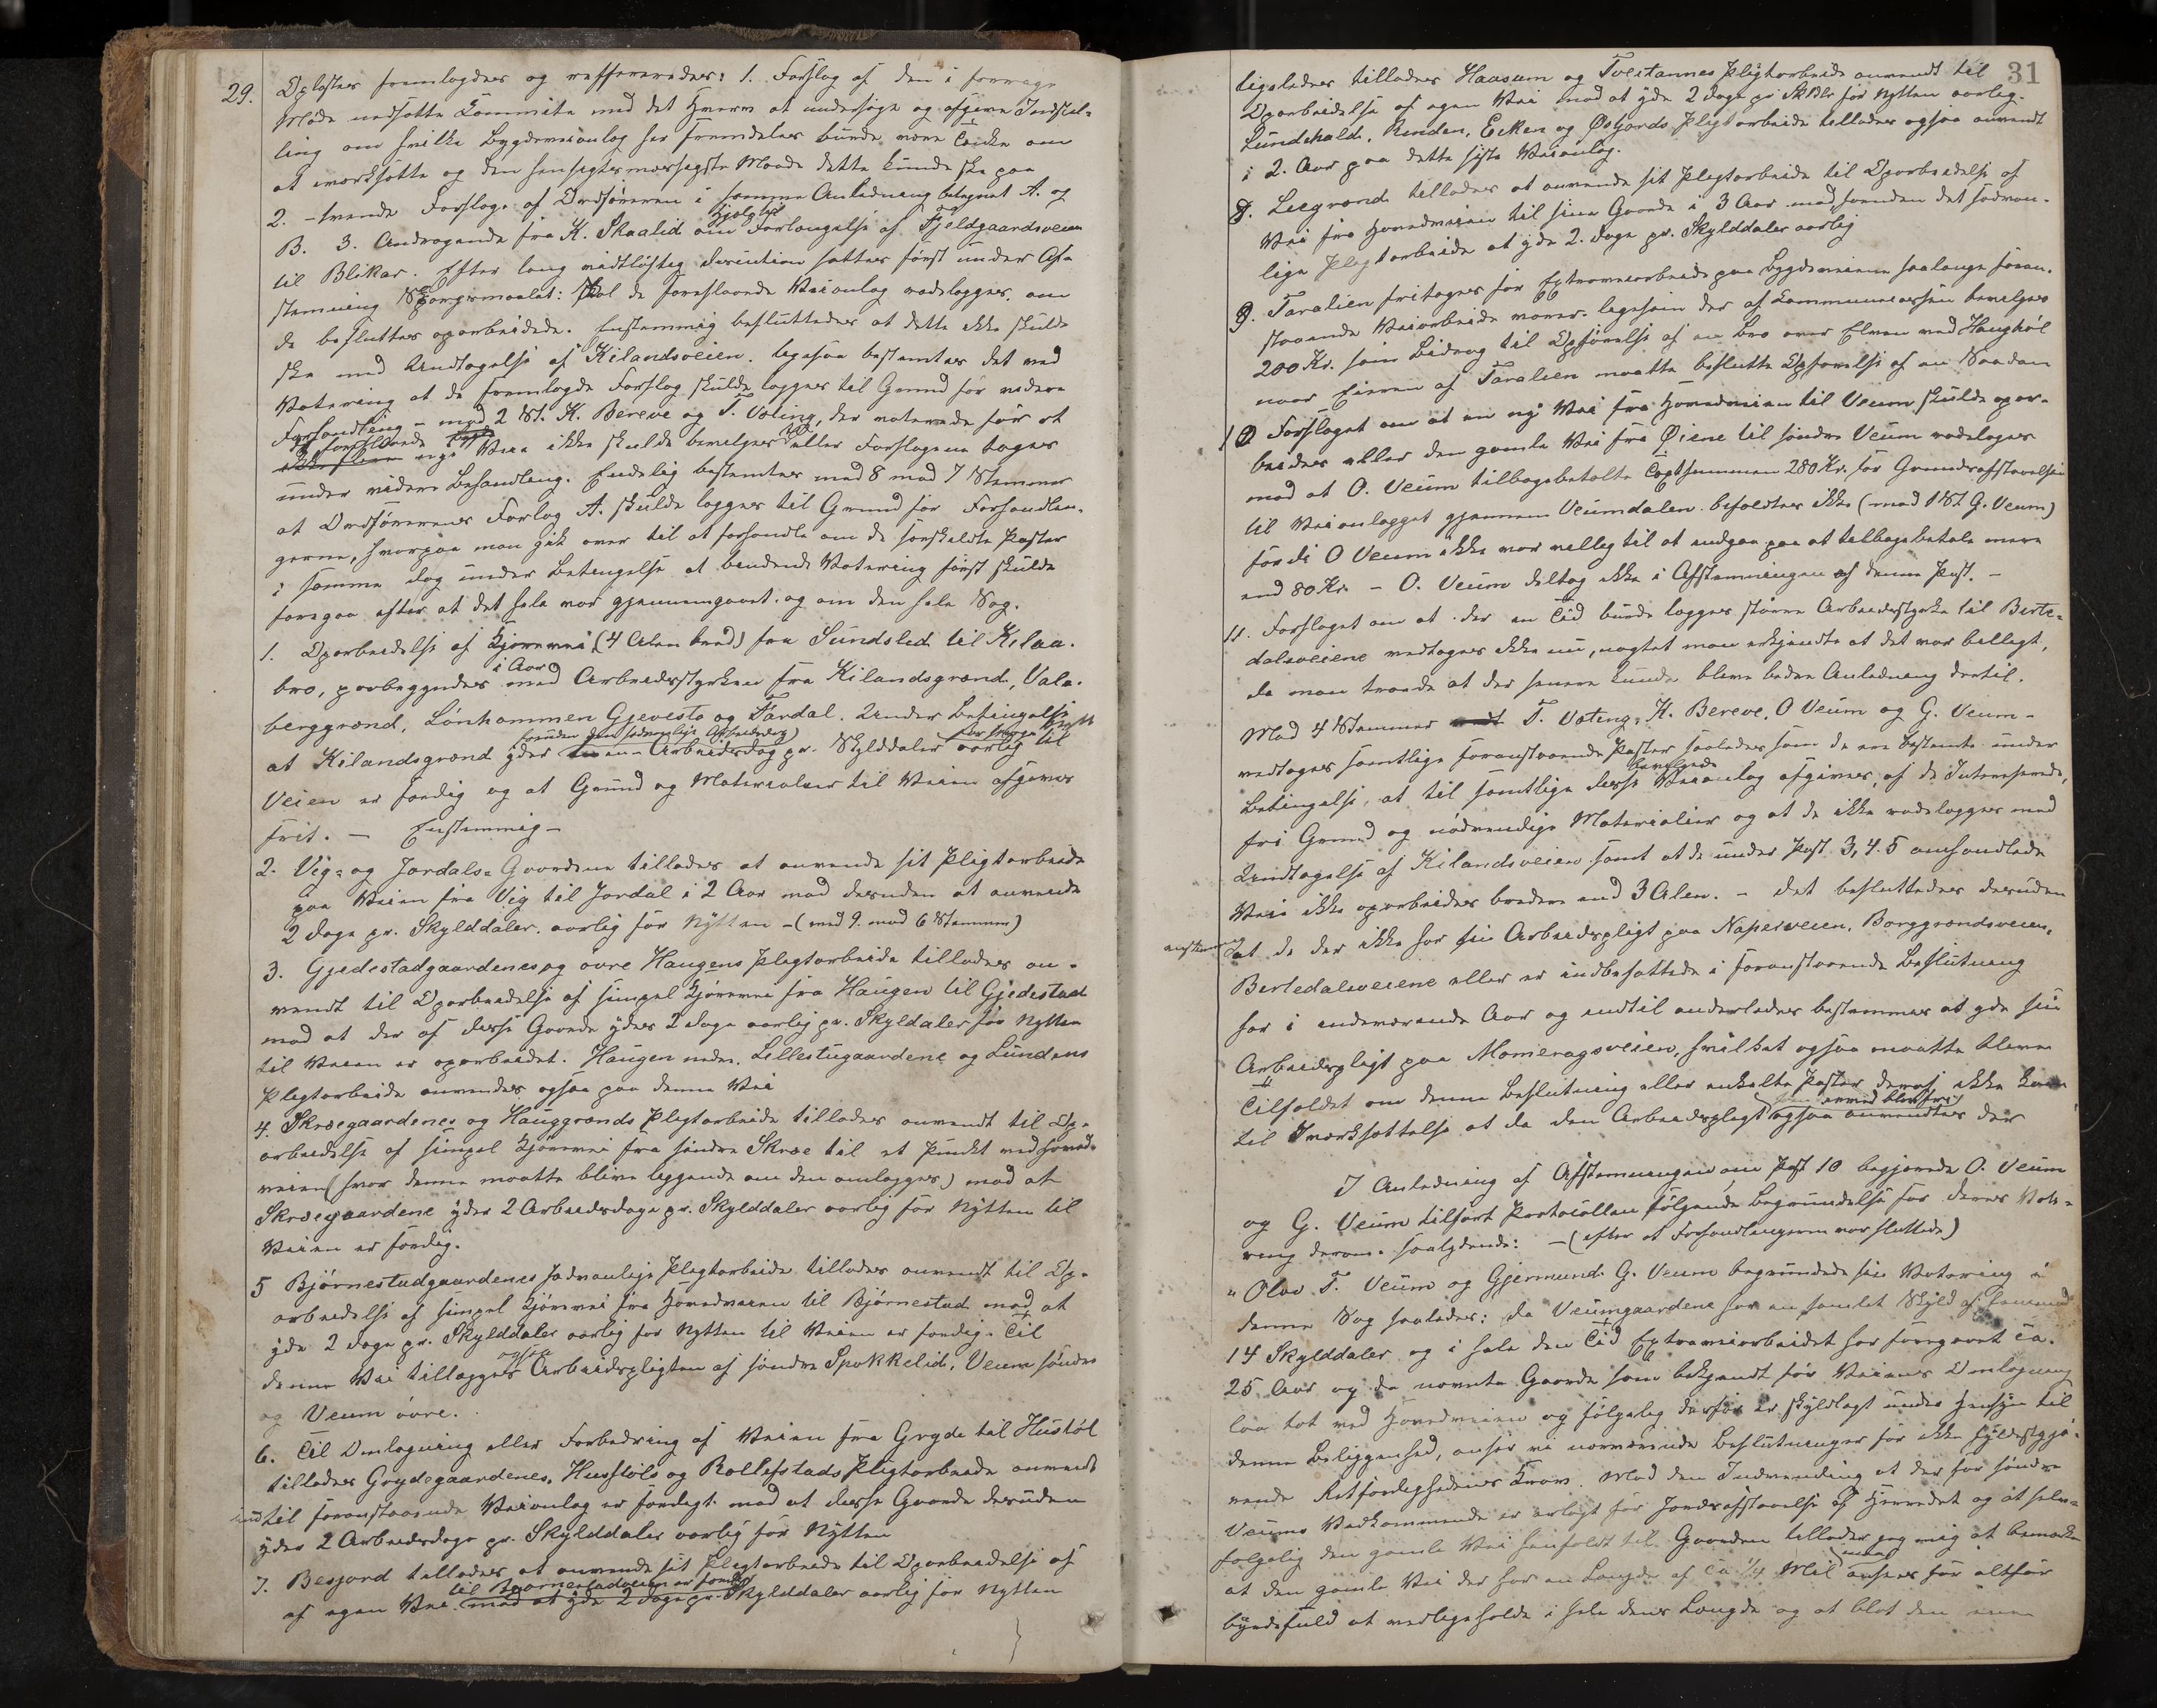 29. Oplæstes fremlagdes og refferreredes: 1. Forslag af den i forrige
Møde nedsatte Committe med det Hverv at undersøge og afgive Indstil-
ling om hvilke Bygdeveianlæg her fremdeles burde være Tanke om
at iværksætte og den hensigtsmæssigste Maade dette kunde ske paa
2. - tvende Forslage af Ordføreren i samme Anledning betegnet A. og
B. 3. Andragende fra K. Skaalid om Hjælp til Forlængelse af Fjeldgaardsveien
til Blikar. Efter lang vidtløftig discution sattes først under Af-
stemning Spørgsmaalet: Skal de foreslaaede Veianlæg nedlægges, om
de besluttes oparbeidede. Enstemmig besluttedes at dette ikke skulde
ske med Undtagelse af Kilandsveien. ligesaa bestemtes det ved
Votering at de fremlagde Forslag skulde lægges til Grund for videre
Forhandling - mod 2 St. K. Bereve og T. Væting, der voterede for at
de foreslaaede nye Veie ikke skulde bevilges eller Forslagene tages
under videre Behandling. Endelig bestemtes med 8 mod 7 Stemmer
at Ordførerens Forlag A. skulde lægges til Grund for Forhandlin-
gerne, hvorpaa man gik over til at forhandle om de forskjeldte Poster
i samme dog under Betingelse at bindende Votering først skulde
foregaa efter at det hele var gjennemgaaet og om den hele Sag.
1. Oparbeidelse af Kjørevei (4 Alen bred) fra Sundslid til Kilaa-
bro, paabegyndes i Aar med Arbeidsstyrken fra Kilandsgrænd, Vala-
berggrænd, Lønhommen Gjevesto og Fardal. Under Betingelse
at Kilandsgrænd yder foruden den sædvanlige Arbeidsdag pr. Skylddaler aarlig til
Veien er færdig og at Grund og Materialier til Veien afgives
frit. - Enstemmig -
2. Vig- og Jordals-Gaardene tillades at anvende sit Pligtarbeide
paa Veien fra Vig til Jordal i 2 Aar mod desuden at anvende
2 dage pr. Skylddaler. aarlig for Nytten - (med 9. mod 6 Stemmer)
3. Gjedestadgaardenes og øvre Haugens Pligtarbeide tillades an-
vendt til Oparbeidelse af simpel Kjørevei fra Haugen til Gjedestad
mod at der af disse Gaarde ydes 2 dage aarlig pr. Skyldaler for Nytten
til Veien er oparbeidet. Haugen nedre, Lillestugaardene og Lundens
Pligtarbeide anvendes ogsaa paa denne Vei
4. Skræegaardenes og Hauggrænds Pligtarbeide tillades anvendt til Op-
arbeidelse af simpel Kjørevei fra søndre Skræe til et Punkt ved Hoved-
veien (hvor denne maatte blive liggende om den omlægges) mod at
Skræegaardene yder 2 Arbeidsdage pr. Skylddaler aarlig for Nytten til
Veien er færdig.
5 Bjørnestadgaardenes sædvanlige Pligtarbeide tillades anvendt til Op-
arbeidelse af simpel Kjørevei fra Hovedveien til Bjørnestad mod at
yde 2 dage pr. Skylddaler aarlig for Nytten til Veien er færdig. Til
denne Vei tillægges ogsaa Arbeidspligten af søndre Spokkelid, Veum søndre
og Veum øvre.
6. Til Omlægning eller Forbedring af Veien fra Gryde til Hustøl
tillades Grydegaardenes, Husstøls og Rollefstads Pligtarbeide anvendt
indtil foranstaaende Veianlæg er færdigt. mod at disse Gaarde desuden
yder 2 Arbeidsdage pr. Skylddaler aarlig for Nytten
7. Besjord tillades at anvende sit Pligtarbeide til Oparbeidelse af
af egen Vei. til Bjørnestadveien er færdig mod at yde 2 dage pr. Skylddaler aarlig for Nytten
31
ligeledes tillades Haasum og Tveitannes Pligtarbeide anvendt til
Oparbeidelse af egen Vei mod at yde 2 dage pr. Sk.Dlr for Nytten aarlig.
Lundekald, Renden, Eeken og Østjords Pligtarbeide tillades ogsaa anvendt
i 2. Aar paa dette siste Veianlæg.
8. Leegrænd tillades at anvende sit Pligtarbeide til Oparbeidelse af
Vei fra Hovedveien til sine Gaarde i 3 Aar mod foruden det sædvan-
lige Pligtarbeide at yde 2. dage pr. Skylddaler aarlig
9. Taralien fritages for Extraveiarbeide paa Bygdeveiene saalænge foran-
staaende Veiarbeide varer. ligesom der af Kommunecassen bevilges
200 Kr. som Bidrag til Opførelse af en bro over Elven ved Haughøl
naar Eieren af Taralien maatte beslutte Opførelse af en Saadan
10 Forslaget om at en ny Vei fra Hovedveien til Veum skulde opar-
beides eller den gamle Vei fra Øiene til søndre Veum nedlægges
mod at O. Veum tilbagebetalte Taxtsummen 280 Kr. for Grundafstaaelsen
til Veianlægget gjennem Veumdalen befoldtes ikke (mod 1 St G. Veum)
fordi O Veum ikke var villig til at indgaa paa at tilbagebetale mere
end 80 Kr. - O. Veum deltog ikke i Afstemningen af denne Post. -
11. Forslaget om at der en Tid burde lægges større Arbeidsstyrke til Birte-
dalsveiene vedtoges ikke nu, uagtet man erkjendte at det var billigt,
da man troede at der senere kunde blive bedre Anledning dertil.
Mod 4 Stemmer T. Væting, K. Bereve, O Veum og G. Veum -
vedtoges samtlige foranstaaende Poster saaledes som de ere bestemte under
Betingelse, at til samtlige disse bevilgede Veianlæg afgives, af de Interesserede,
fri Grund og nødvendige Materialier og at de ikke nedlægges med
Undtagelse af Kilandsveien samt at de under Post 3, 4. 5 omhandlede
Veie ikke oparbeides bredere end 3 Alen. - det besluttedes desuden
enstemmig at de der ikke har sin Arbeidspligt paa Naperveien, Borggrændsveien,
Bertedalsveiene eller er indbefattede i foranstaaende Beslutning
har i indeværende Aar og indtil anderledes bestemmes at yde sin
Arbeidspligt paa Momeragsveien, hvilket ogsaa maatte blive
Tilfældet om denne Beslutning eller enkelte Poster deraf ikke kom
til Iværksættelse at da den Arbeidspligt som derved blev fri ogsaa anvendtes der
I Anledning af Afstemningen om Post 10 begjærede O. Veum
og G. Veum tilført Protocollen følgende Begrundelse for deres Vote-
ring derom. saalydende: - (efter at Forhandlingerne var sluttede)
"Olav T. Veum og Gjermund G. Veum begrundede sin Votering i
denne Sag saaledes: da Veumgaardene har en samlet Skyld af henimod
14 Skylddaler og i hele den Tid Extraveiarbeidet har foregaaet ca.
25 Aar og da nævnte Gaarde som bekjendt før Veiens Omlægning
laa tæt ved Hovedveien og følgelig derfor er skyldlagt under Hensyn til
denne Beliggenhed, anser vi nærværende Beslutninger for ikke fyldestgjø-
rende Retfærdighedens Krav. Mod den Indvending at der for søndre
Veums Vedkommende er erlagt for Jordafstaaelse af Herredet og at selv-
følgelig den gamle Vei henfaldt til Gaarden tillader jeg mig at bemærke
at den gamle Vei der har en Længde af ca 1/4 Mil ansees for altfor
byrdefuld at vedligeholde i hele dens Længde og at blot den ene